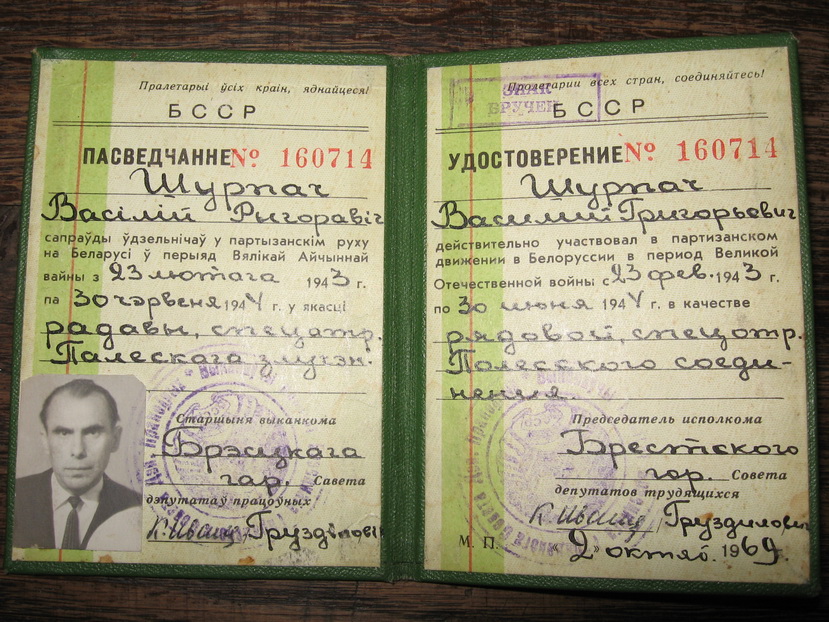 Пралетарыі ўсіх краін, яднайцеся!
БССР
ПАСВЕДЧАННЕ № 160714
Шурпач
Васілій Рыгоравіч
сапраўды ўдзельнічаў у партызанскім руху
на Беларусі ў перыяд Вялікай Айчыннай
вайны з 23 лютага 1943 г.
па 30 чэрвеня 1944 г. у якасці
радавы, спецатр.
Палескага злучэн.
Старшыня выканкома
Брэсцкага
гар. Савета
дэпутатаў працоўных
Груздзіловіч
Пролетарии всех стран, соединяйтесь!
ЗНАК
ВРУЧЕН
БССР
УДОСТОВЕРЕНИЕ № 160714
Шурпач
Василий Григорьевич
действительно участвовал в партизанском
движении в Белоруссии в период Великой
Отечественной войны с 23 фев. 1943 г.
по 30 июня 1944 г. в качестве
рядовой, спецотр.
Полесского соеди-
нения.
Председатель исполкома
Брестского
гор. Совета
депутатов трудящихся
Груздилович
М. П. «2» октяб. 1969.